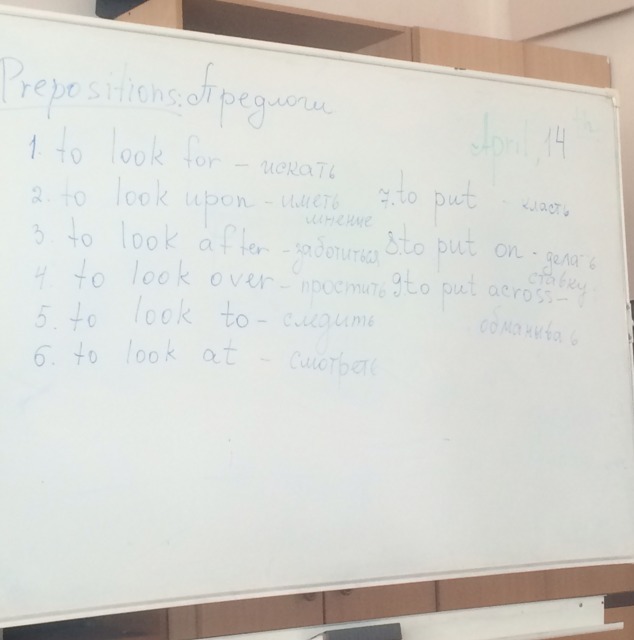 Prepositions: Предлоги
April, 14th
1. to look for – искать
2. to look upon – иметь мнение
3. to look after – заботиться
4. to look over – простить
5. to look to – следить
6. to look at – смотреть
7. to put - класть
8. to put on - дела ь
ставку
9 to put across –
обманыва ь